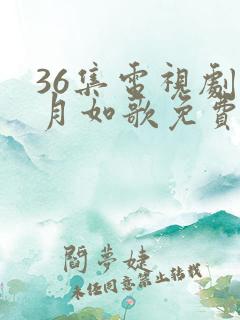 36集電視劇
月如歌免費
閻夢婕
未经同意禁止转载